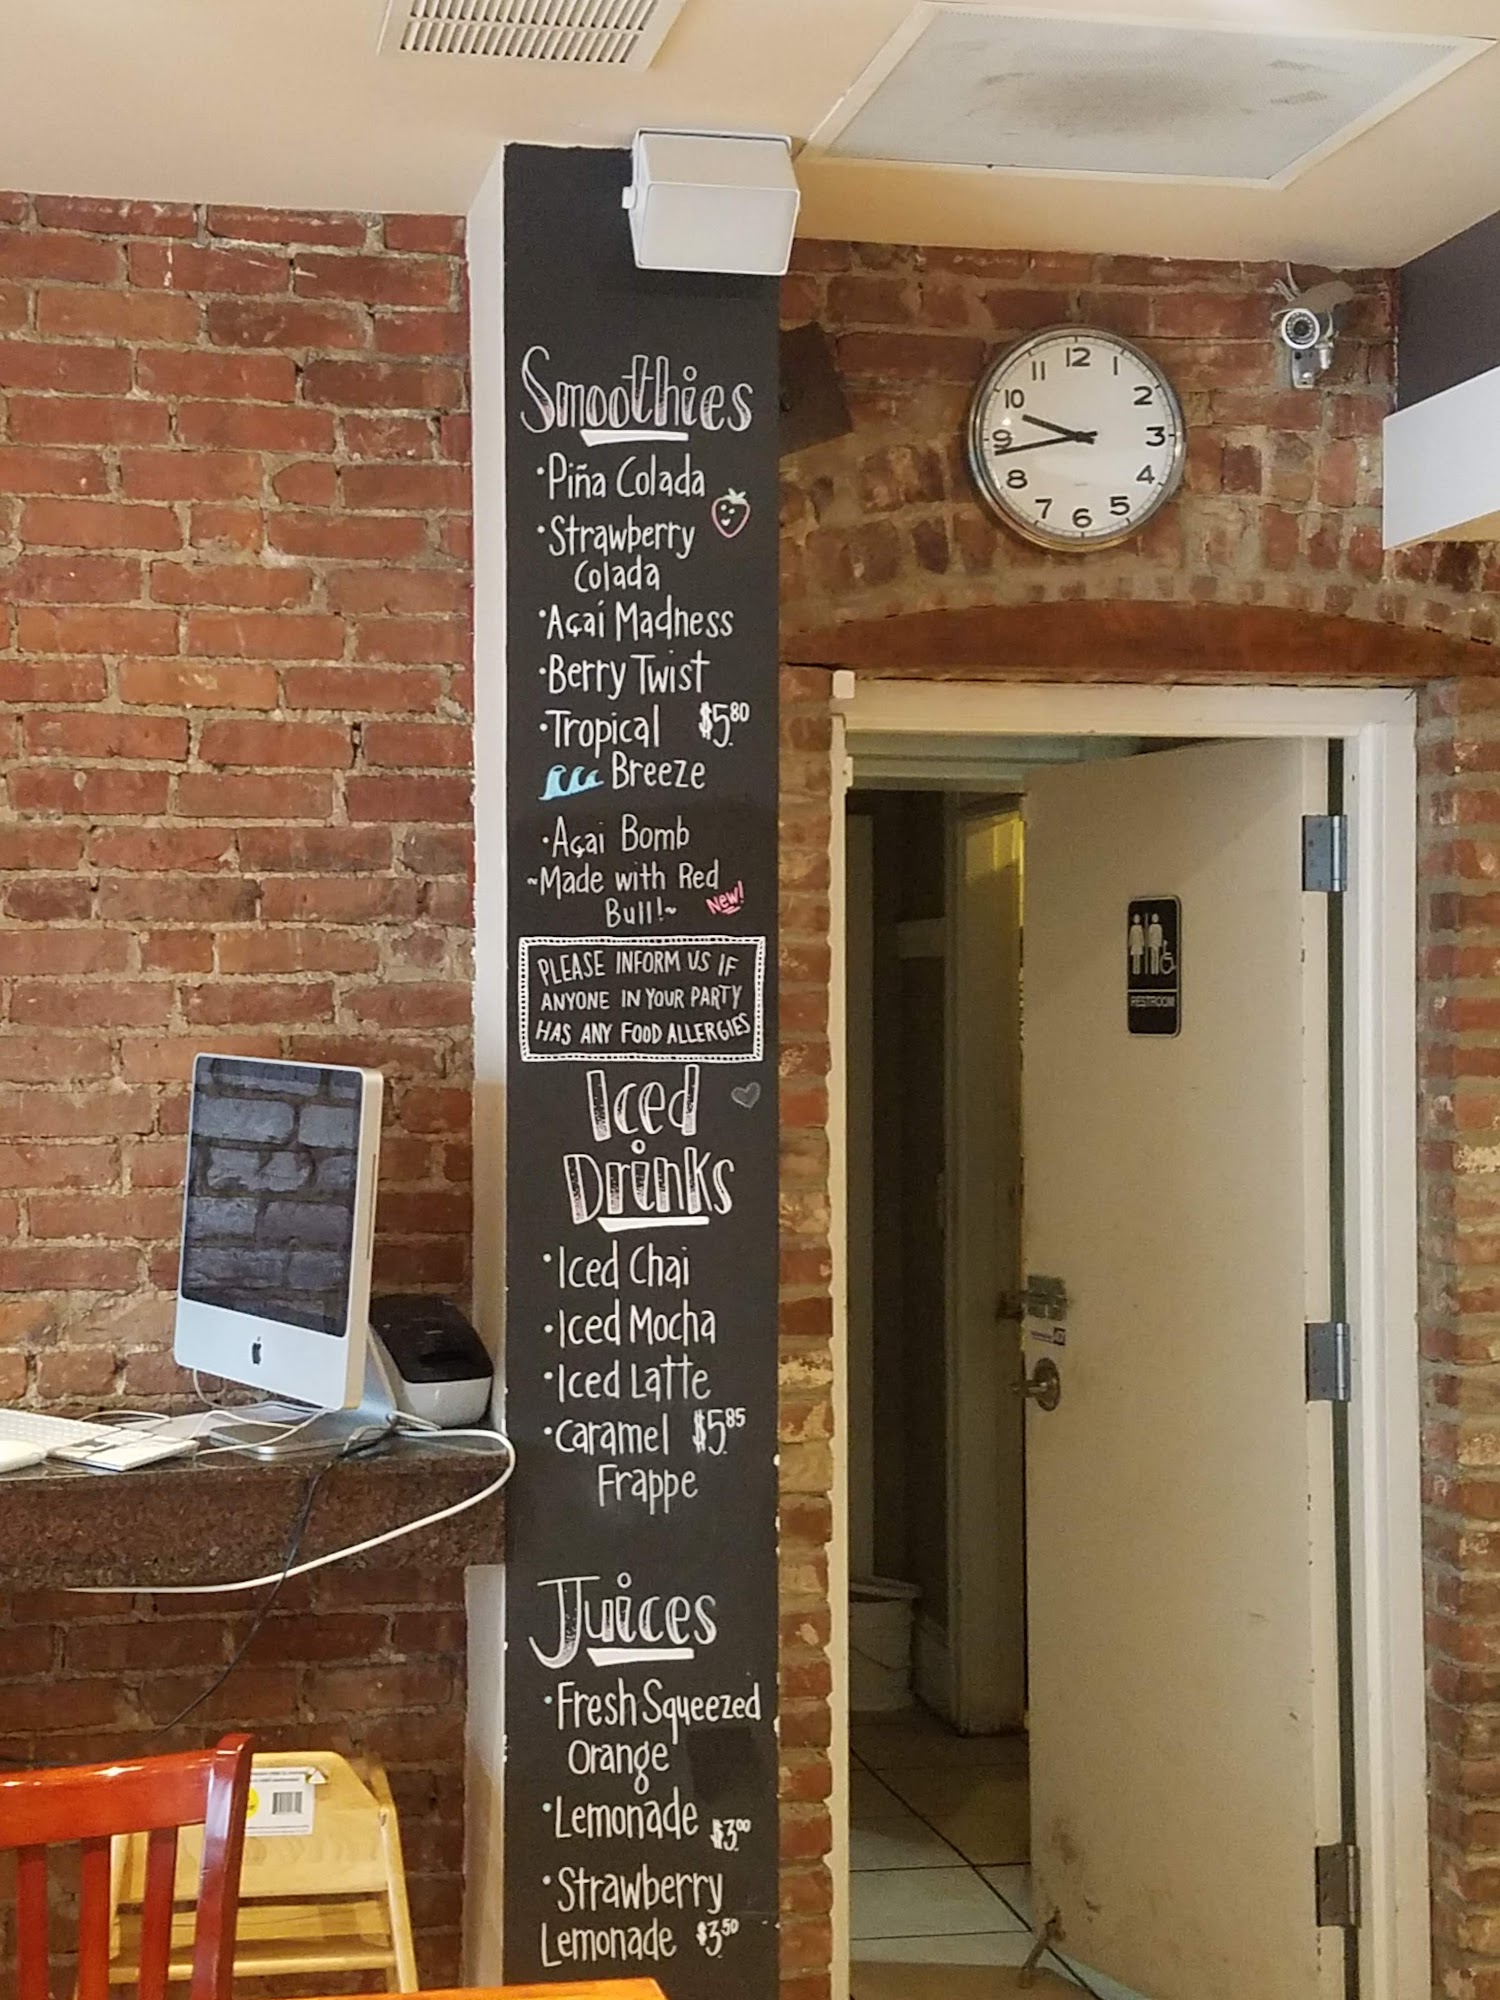 Smoothies
•Piña Colada
•Strawberry
Colada
•Açaí Madness
•Berry Twist
•Tropical $5.80
Breeze
•Açai Bomb
~Made with Red
Bull!~ New!
PLEASE INFORM US IF
ANYONE IN YOUR PARTY
HAS ANY FOOD ALLERGIES
Iced
Drinks
•Iced Chai
•Iced Mocha
•Iced Latte
•Caramel $5.85
Frappe
Juices
•Fresh Squeezed
Orange
•Lemonade $3.00
•Strawberry
Lemonade $3.50
12
1
2
3
4
5
6
7
8
9
10
11
RESTROOM